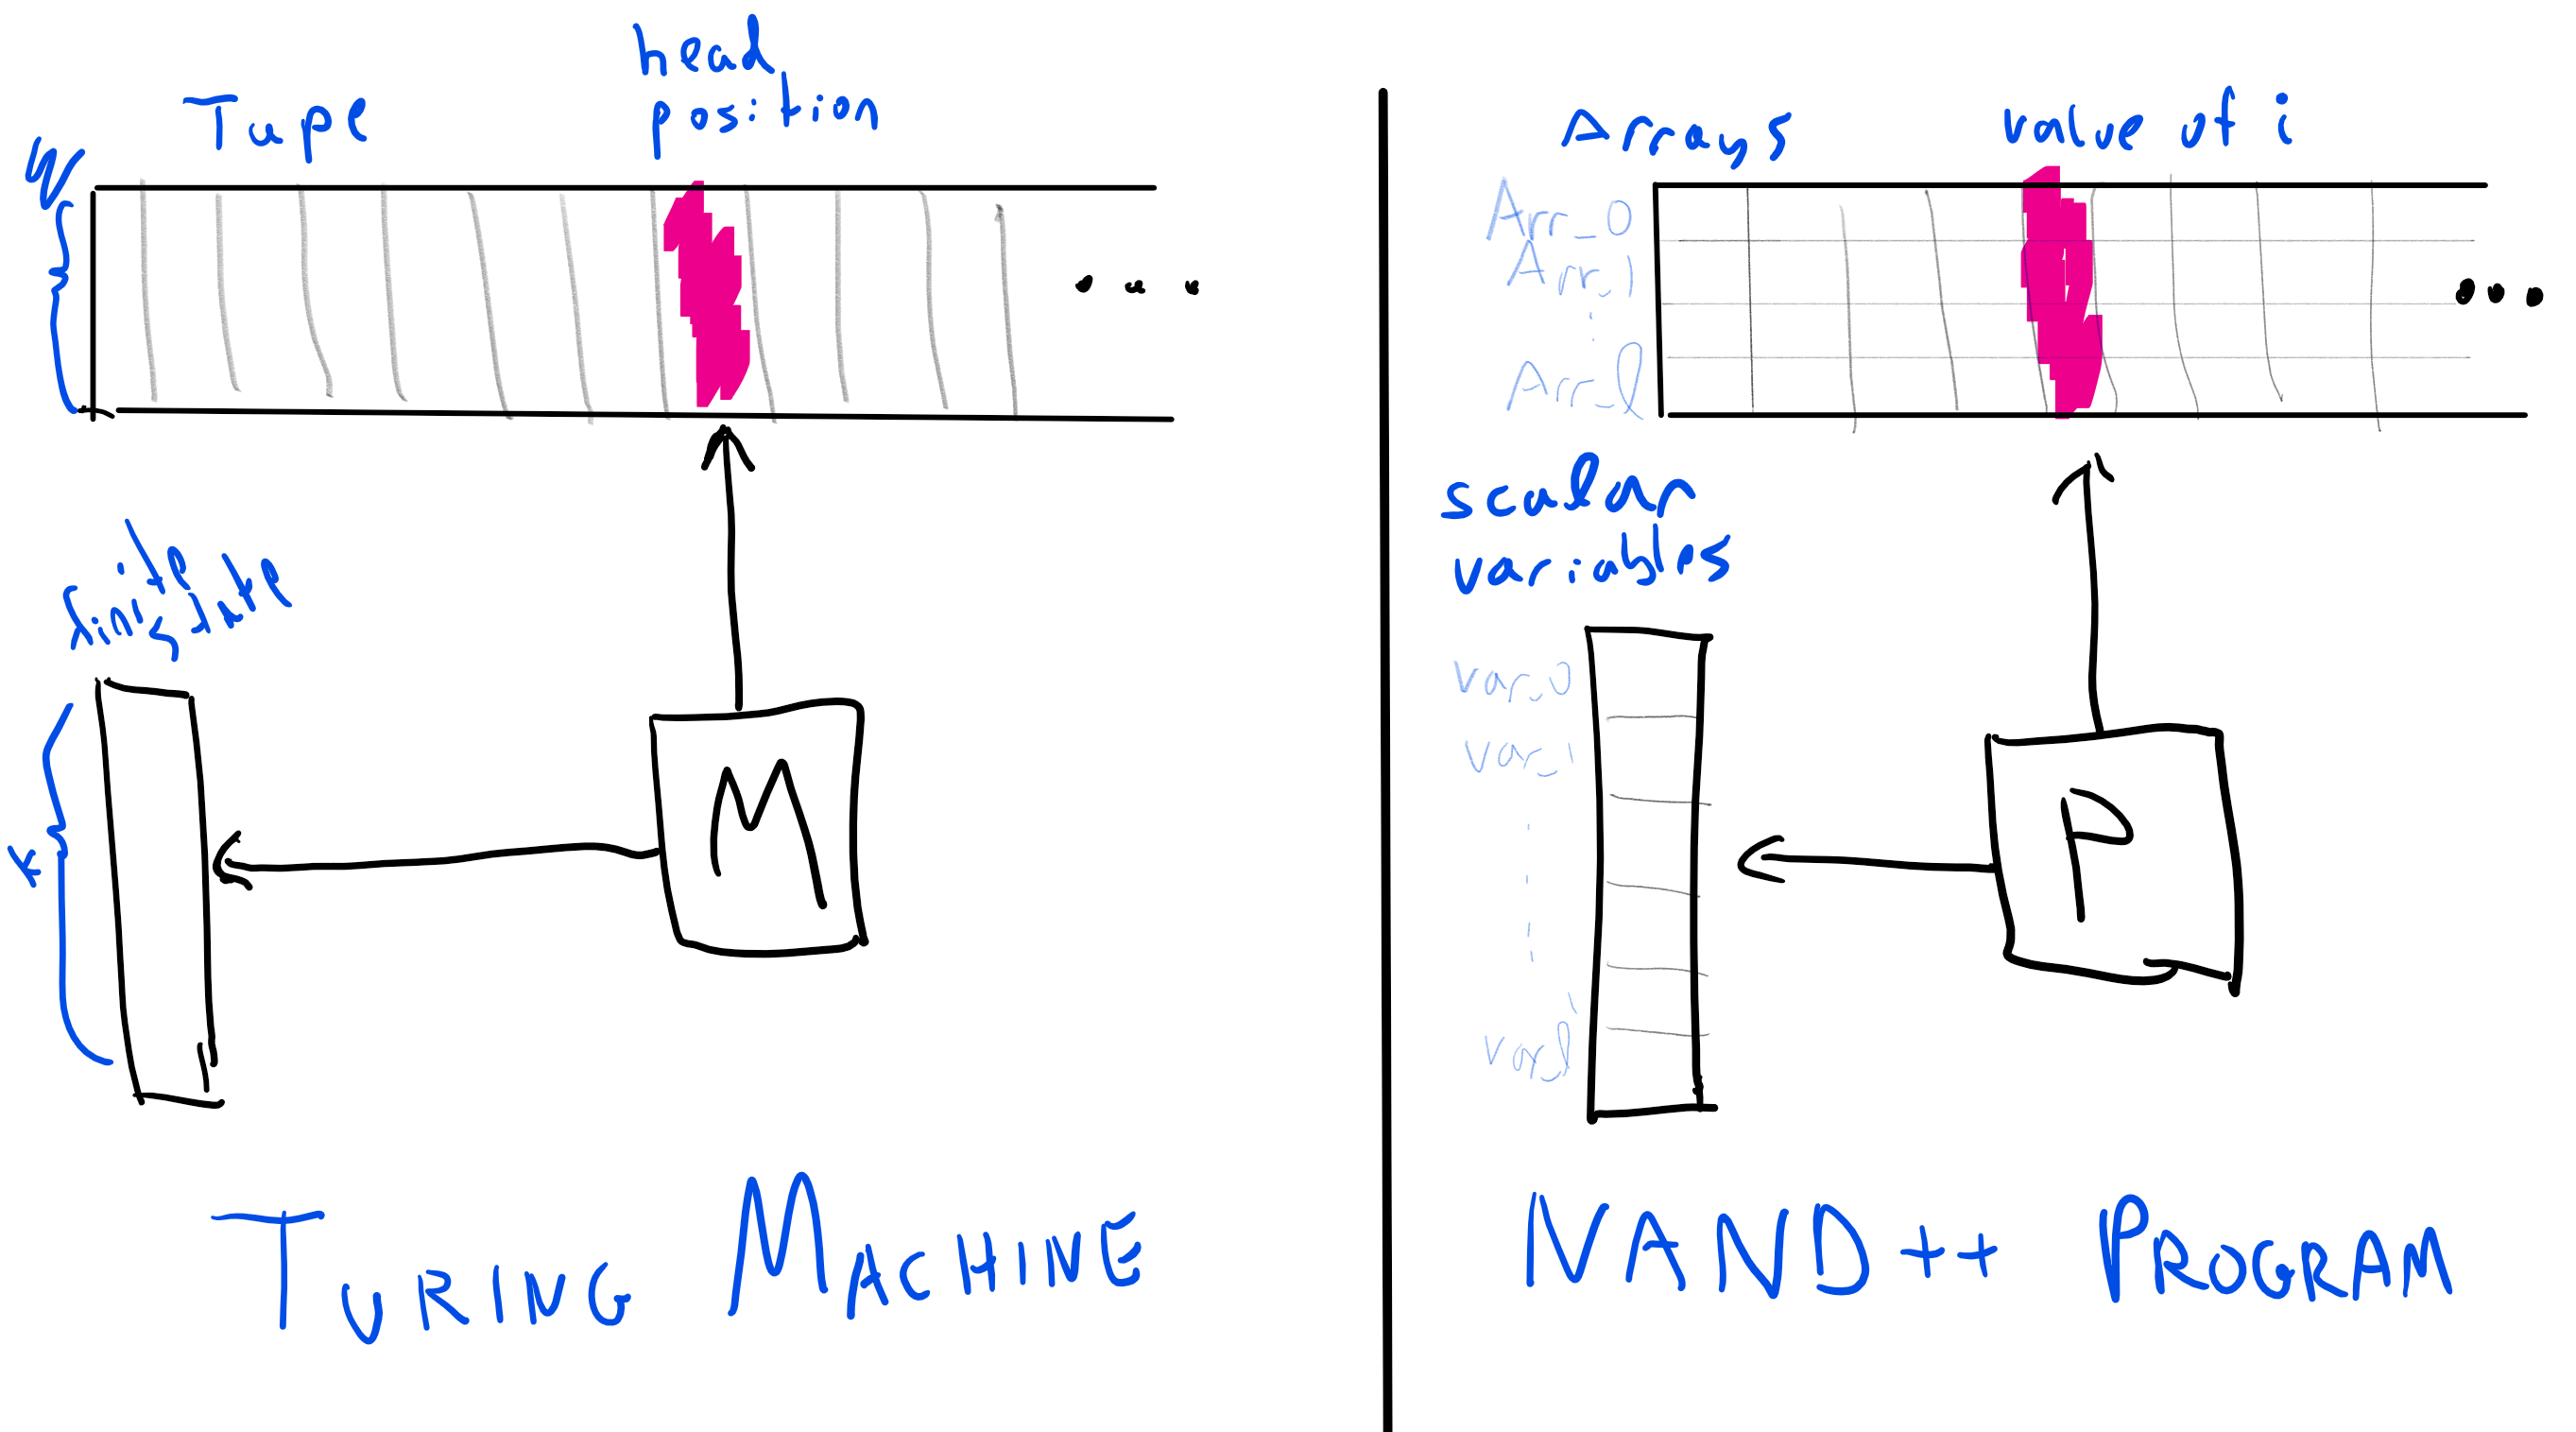 Tape
head
position
finite
state
k
M
TURING MACHINE
Arrays
value of i
Arr_0
Arr_1
Arr_l
scalar
variables
var_0
var_1
var_l'
P
NAND++ PROGRAM